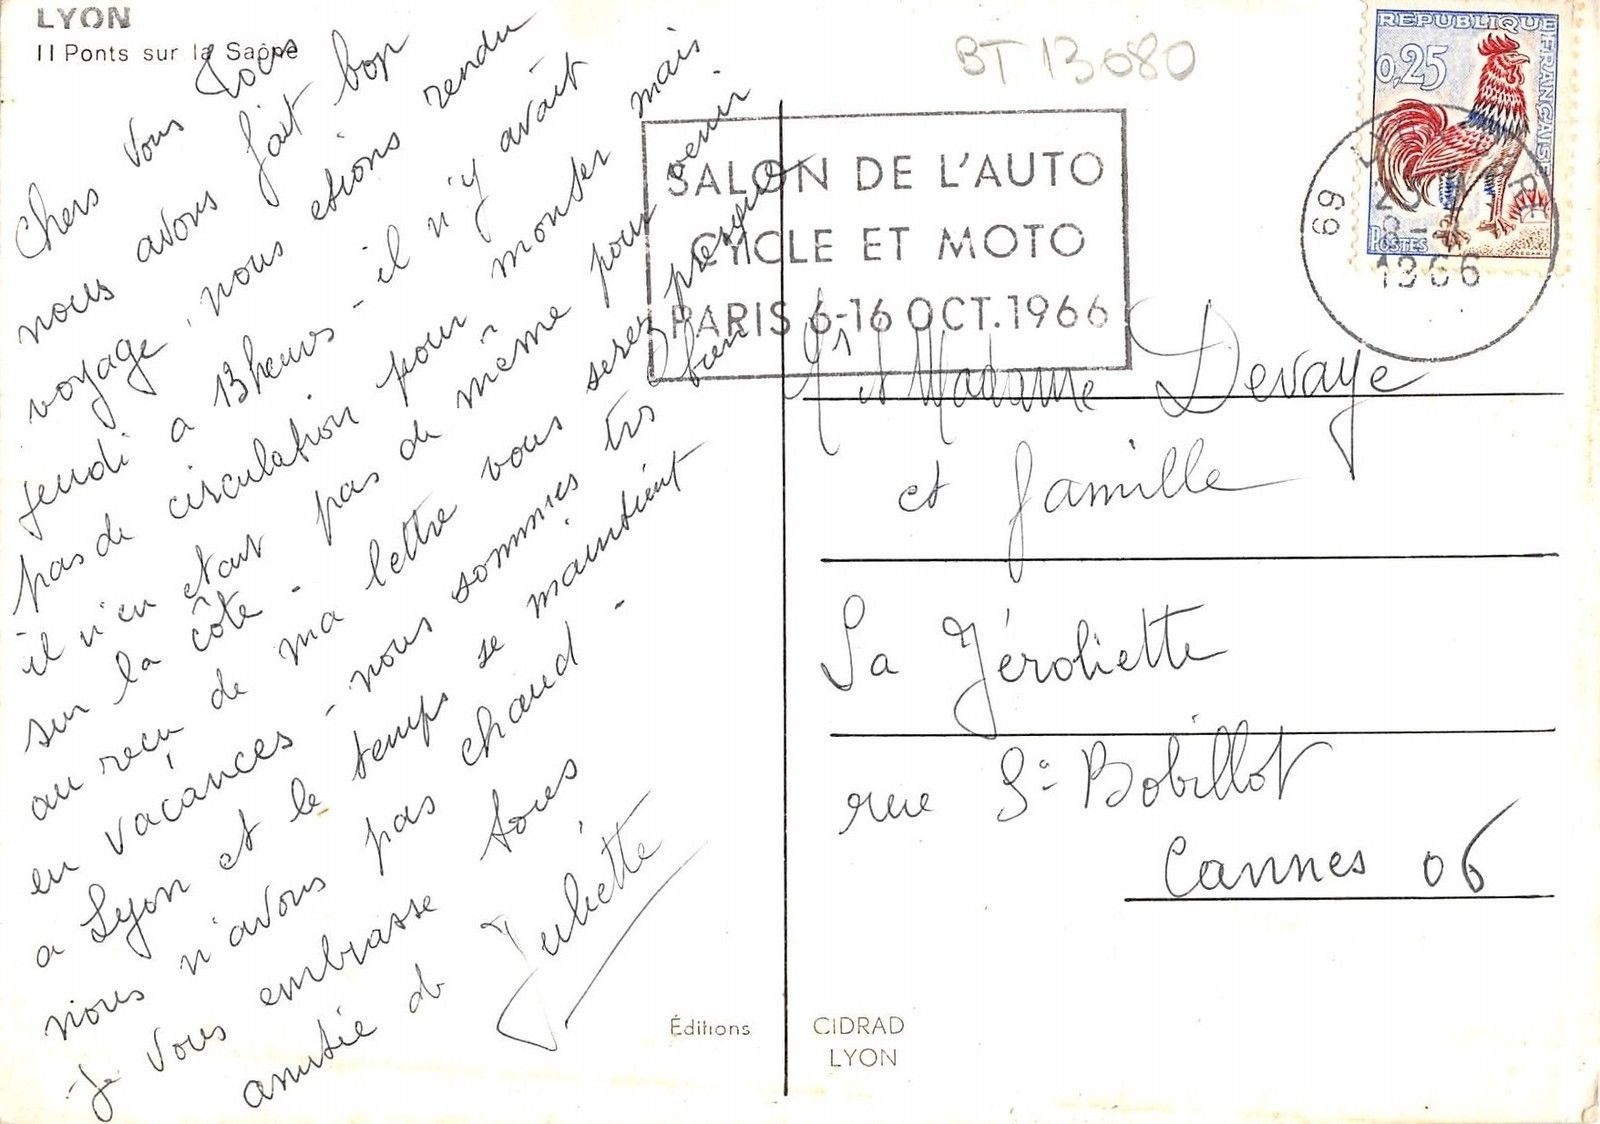 LYON
11 Ponts sur la Saône
BT 13080
REPUBLIQUE FRANÇAISE
0,25
POSTES
69
1966
SALON DE L'AUTO
CYCLE ET MOTO
PARIS 6-16 OCT. 1966
Chers vous tous
nous avons fait bon
voyage, nous etions rendu
jeudi a 13 heures - il n'y avait
pas de circulation pour monter mais
il n'en etait pas de même pour venir
sur la côte - vous serez presque
au reçu de ma lettre
en vacances - nous sommes très bien
a Lyon et le temps se maintient
nous n'avons pas chaud -
Je vous embrasse tous
amitié de Juliette
Mr et Madame Devaye
et famille
La Jéroliette
rue St Bobillot
Cannes 06
Éditions CIDRAD
LYON